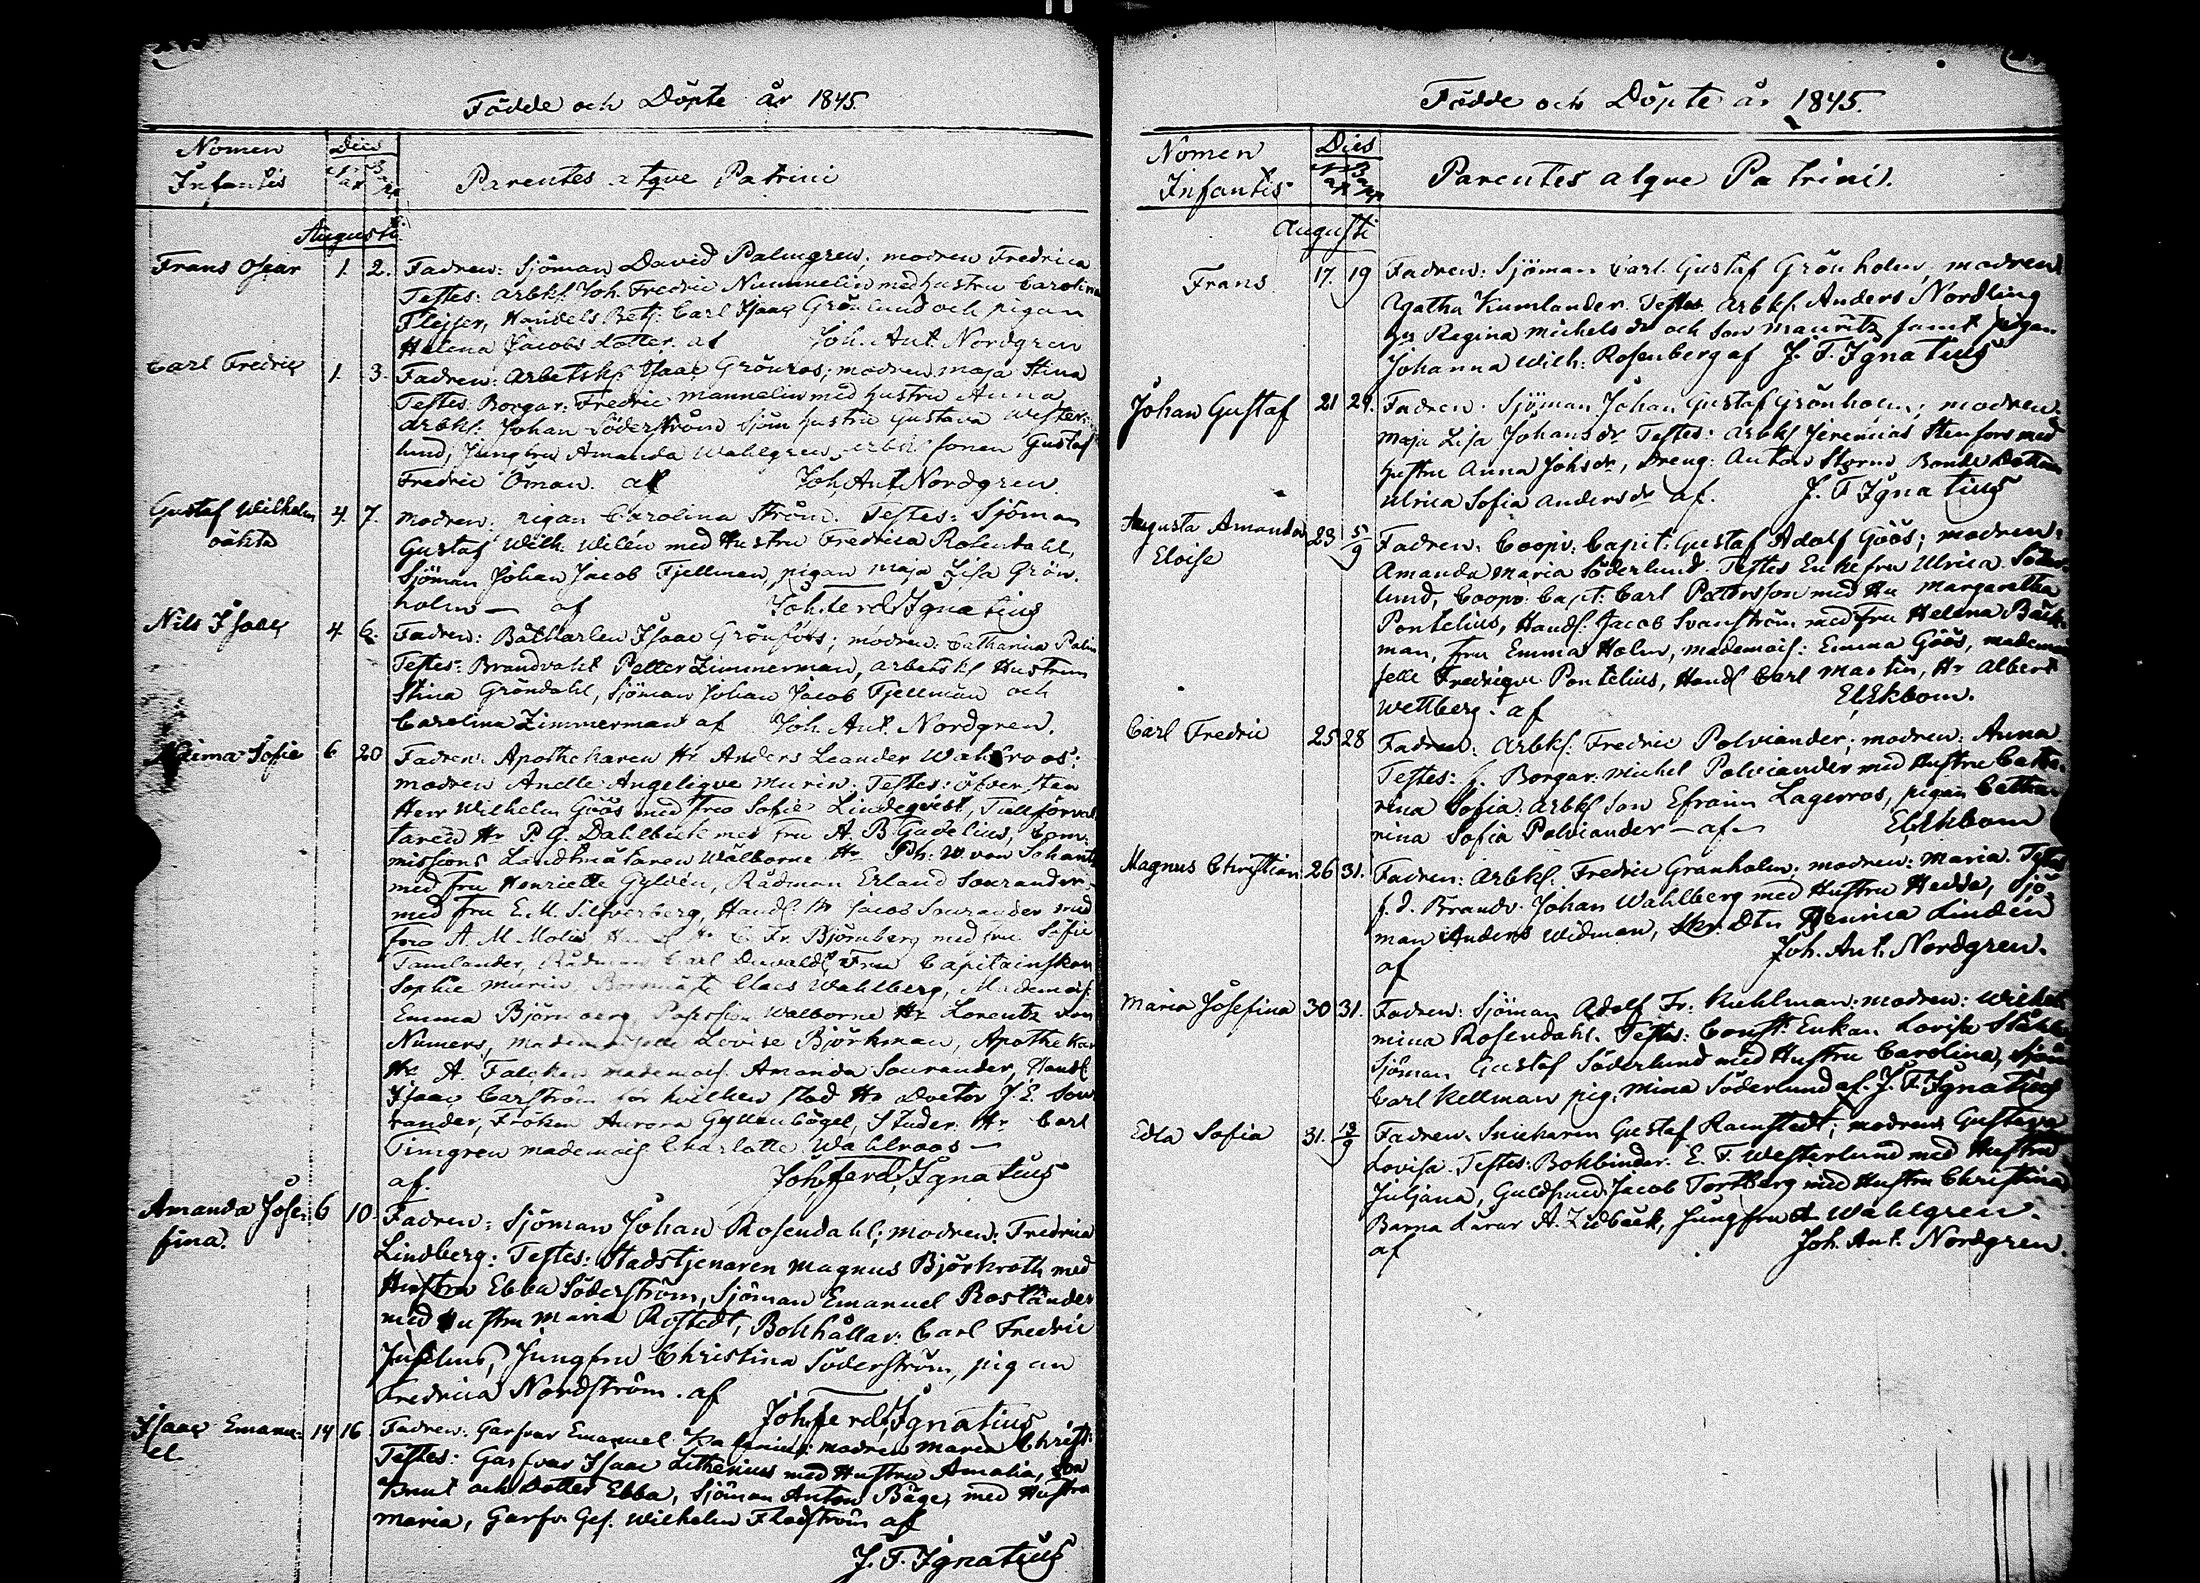 Födde och Döpte år 1845
Nomen
Infantis
Dies
Parentes atque Patrini
Augusti
Frans Oscar 1. 2. Fadren: Sjöman David Palmgren; modren Fredrica
Testes: Arbksl Joh. Fredric Nummelin med hustru Carolina
Flejser, Handels Betj: Carl Isaac Grönlund och pigan
Helena Jacobs dotter. af Joh. Ant. Nordgren
Carl Fredric 1. 3. Fadren: Arbetsk. Isaac Grönros; modren Maja Stina
Testes: Borgar: Fredric Mannelin med hustru Anna
Arbksl: Johan Söderström Sjöm hustru Gustava Wester-
lund, Jungfru Amanda Wahlgren, sonen Gustaf
Fredric Öman. af Joh. Ant. Nordgren.
Gustaf Wilhelm 4. 7. modren: pigan Carolina Ström. Testes: Sjöman
oäkta Gustaf Wilh. Wilén med Hustru Fredrica Rosendahl,
Sjöman Johan Jacob Fjellman, pigan Maja Lisa Grön-
holm — af Joh. ferd. Ignatius
Nils Isaac 4 6. Fadren: Båtkarlen Isaac Grönfors; modren: Catharina Palm
Testes: Brandvakt Petter Zimmerman, arbetsksl Hustrun
Stina Gröndahl, Sjöman Johan Jacob Fjellman och
Carolina Zimmerman af Joh. Ant. Nordgren.
Naima Sofie 6 20 Fadren: Apothekaren Hr Anders Leander Wahlroos;
modren Anelle Angelique Murin; Testes: öfversten
Herr Wilhelm Göös med fru Sofie Lindeqvist, Tullförval
taren Hr P. G. Dahlbeck med fru A. B. Gadelius, Com-
missions Landtmätaren Wälborne Hr Ph. W. von Schantz
med fru Henriette Gyldén, Rådman Erland Sourander
med fru E. M. Silfverberg, Handl. Hr Jacob Sourander med
fru A. M. Molin Hr C. Fr. Björnberg med fru Sofie
Tamlander, Rådman Carl Fru Capitainskan
Sophie Murin, Claes Wahlberg, Mademois:
Emma Björnberg, Wälborne Hr Lorentz von
Numers, mademoiselle Lovise Björkman, Apothekar
Hr A. Falcken mademois. Amanda Sourander, Handl
Isaac Carström för hvilken stod Hr Doctor J. E. Sou
rander, Fröken Aurora Gyllenbögel, Studer. Hr Carl
Timgren mademois Charlotte Wahlroos —
af. Joh. ferd. Ignatius
Amanda Jose- 6 10. Fadren: Sjöman Johan Rosendahl; modren: Fredrica
fina. Lindberg: Testes: Stadstjenaren Magnus Björkroth med
Hustru Ebba Söderström, Sjöman Emanuel Roslander
med Hustru Maria Rostedt, Bokhållar: Carl Fredric
Juselius, Jungfru Christina Söderström, pigan
Fredrica Nordström. af
Joh. ferd. Ignatius
Isaac Emanu- 14 16 Fadren: Garfvar Emanuel modren Maria Christ:
el. Testes: Garfvar Isaac Lithenius med Hustru Amalia, Son
Knut och Dotter Ebba, Sjöman Anton Båge, med Hustru
Maria, Garfv. Ges. Wilhelm Flodström af
J. F. Ignatius
Födde och Döpte år 1845.
Nomen
Infantis
Dies
Parentes atque Patrini.
Augusti
Frans 17. 19 Fadren: Sjöman Carl Gustaf Grönholm, modren
Agatha Kumlander. Testes Arbksl. Anders Nordling
hu Regina Michels dr och Son Mauritz samt pigan
Johanna Wilh: Rosenberg af J. F. Ignatius
Johan Gustaf 21 29. Fadren: Sjöman Johan Gustaf Grönholm; modren:
Maja Lisa Johans dr. Testes: Arbksl Jeremias Stenfors med
hustru Anna Johs dr, Dreng: Anton Storm Bonde Dottern
Ulrica Sofia Anders dr af. J. F. Ignatius
Augusta Amanda 23 5/9 Fadren: Coopv: Capit: Gustaf Adolf Göös; modren:
Eloise Amanda Maria Söderlund. Testes Enkefru Ulrica Söder-
lund, Coopv: Capt: Carl Pettersson med Hu Margaretha
Pontelius, Handl. Jacob Svanström med fru Helena Bäck-
man, fru Emma Holm, mademois: Emma Göös, mademoi
selle Fredrique Pontelius, Handl Carl Martin, Hr Albert
Wettberg. af El. Ekbom.
Carl Fredric 25 28 Fadren: Arbksl. Fredric Polviander; modren: Anna
Testes: f. Borgar. Michel Polviander med Hustru Catha-
rina Sofia. Arbksl Son Efraim Lagerros, pigan Catha-
rina Sofia Polviander — af — El. Ekbom
Magnus Christian 26 31. Fadren: Arbksl. Fredric Granholm. modren: Maria. Testes
f. d. Brandv. Johan Wahlberg med Hustru Hedda, Sjö-
man Anders Widman, Skr. Dtr Henrica Lindén
af Joh. Ant. Nordgren.
Maria Josefina 30 31. Fadren: Sjöman Adolf Fr: Kuhlman. modren: Wilhel
mina Rosendahl. Testes: Const: Enkan Lovisa Ståhl
Sjöman Gustaf Söderlund med Hustru Carolina, Sjöm
Carl Kellman pig. Mina Söderlund af. J. F. Ignatius
Edla Sofia 31. 13/9 Fadren. Snickaren Gustaf Ramstedt; modren Gustava
Lovisa. Testes: Bokbindar. E. F. Westerlund med Hustru
Juljana, Guldsmed Jacob Tortberg med Hustru Christina
Barna Lärar A. Lidbäck, Jungfru A Wahlgren.
af Joh. Ant. Nordgren.